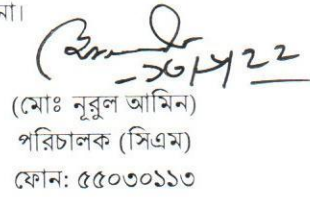 না।
(মোঃ নূরুল আমিন)
পরিচালক (সিএম)
ফোন: ৫৫০৩০১১৩